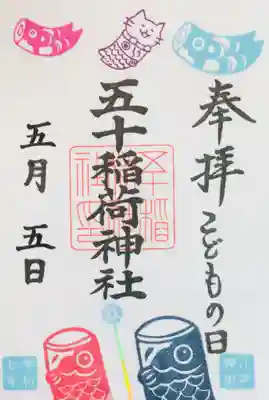 奉拝 こどもの日
五十稲荷神社
五月 五日